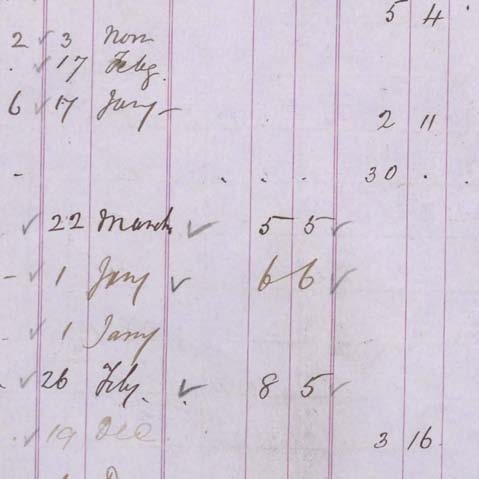 5 4 .
2 ✓ 3 Novr
. ✓ 17 Feby.
6 ✓ 17 Jany – 2 11
- . . . 30 . .
✓ 22 March ✓ 5 5 ✓
- ✓ 1 Jany ✓ 6 6 ✓
- ✓ 1 Jany
. ✓ 26 Feby. ✓ . 8 5 ✓
. ✓ 19 Dec. 3 16 .